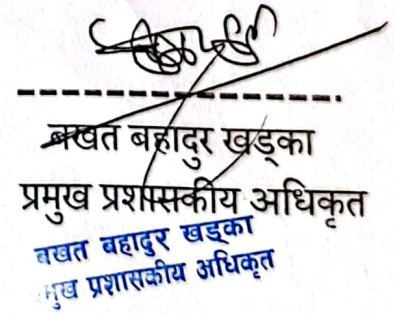 बखत बहादुर खड्का
प्रमुख प्रशासकीय अधिकृत
बखत बहादुर खड्का
मुख प्रशासकीय अधिकृत